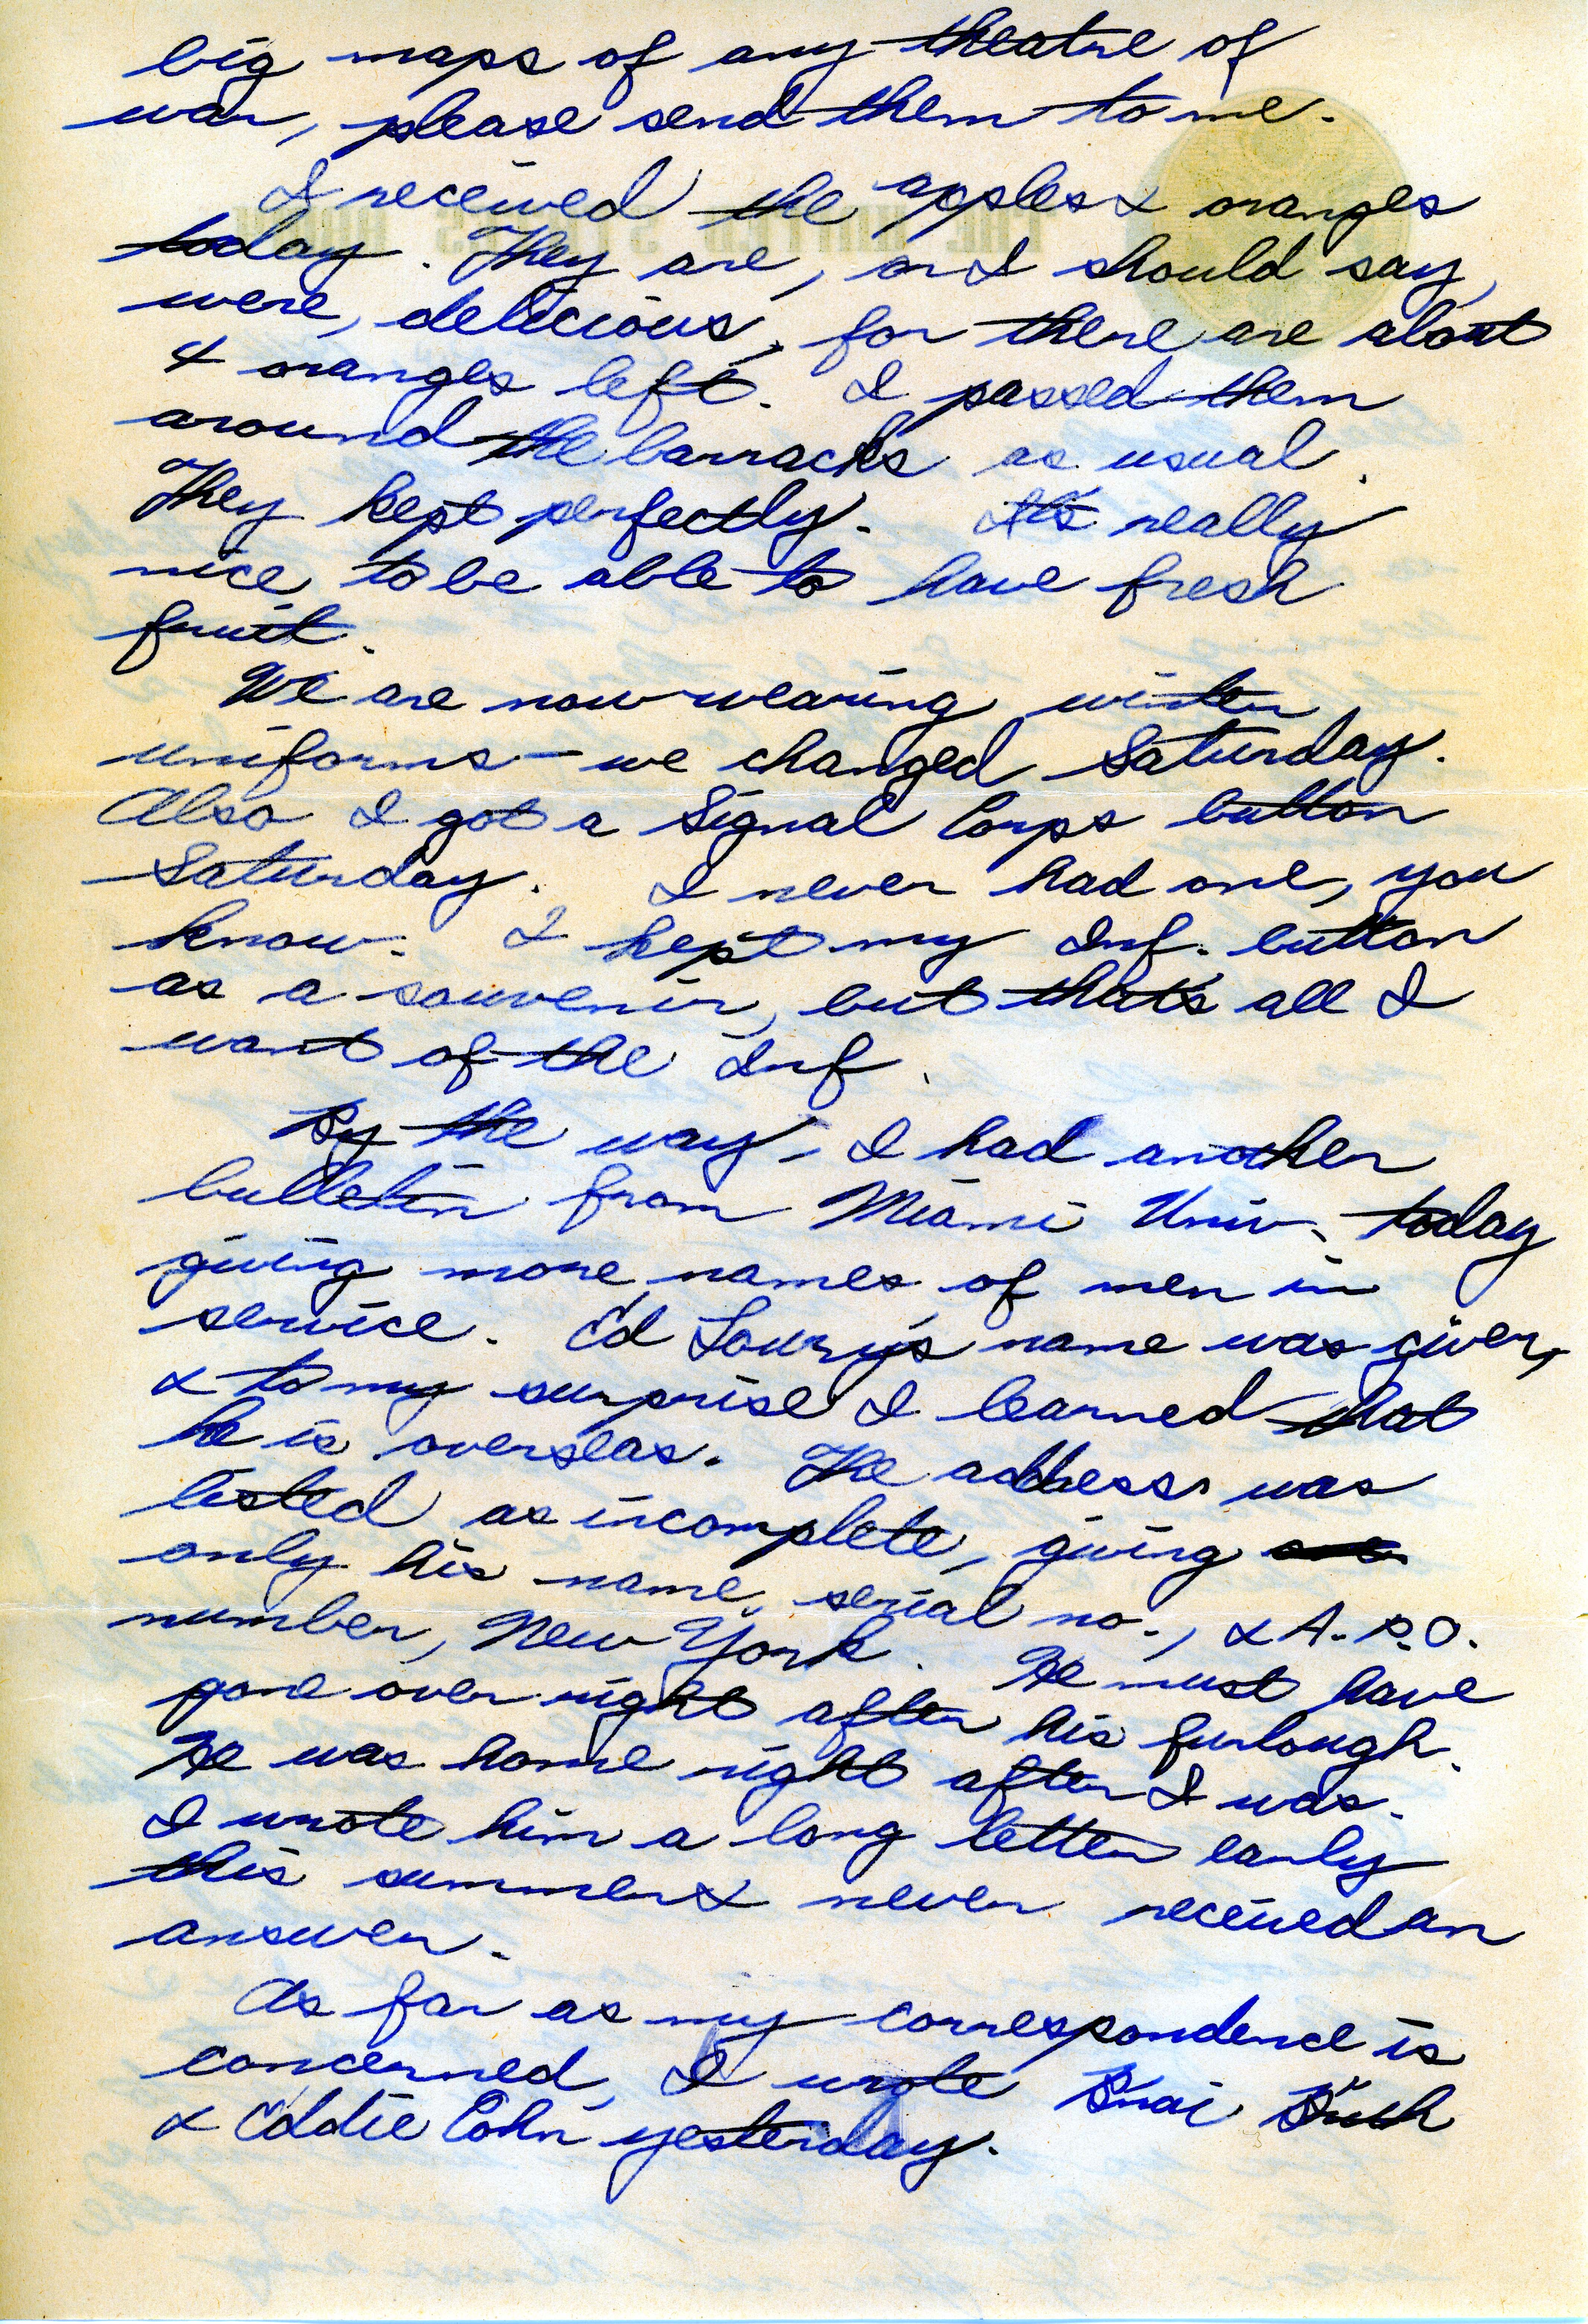 big maps of any theatre of
war, please send them to me.
I received the apples & oranges
today. They are, or I should say,
were, delicious, for there are about
4 oranges left. I passed them
around the barracks as usual.
They kept perfectly. It's really
nice to be able to have fresh
fruit.
We are now wearing winter
uniforms - we changed Saturday.
Also I got a Signal Corps button
Saturday. I never had one, you
know. I kept my Inf. button
as a souvenir, but that's all I
want of the Inf.
By the way, I had another
bulletin from Miami Univ. today
giving more names of men in
service. Ed Lowry's name was given,
& to my surprise I learned that
he is overseas. The address was
listed as incomplete, giving
only his name, serial no., & A.P.O.
number, New York. He must have
gone over right after his furlough.
He was home right after I was.
I wrote him a long letter early
this summer & never received an
answer.
As far as my correspondence is
concerned, I wrote
& Eddie Cohn yesterday.